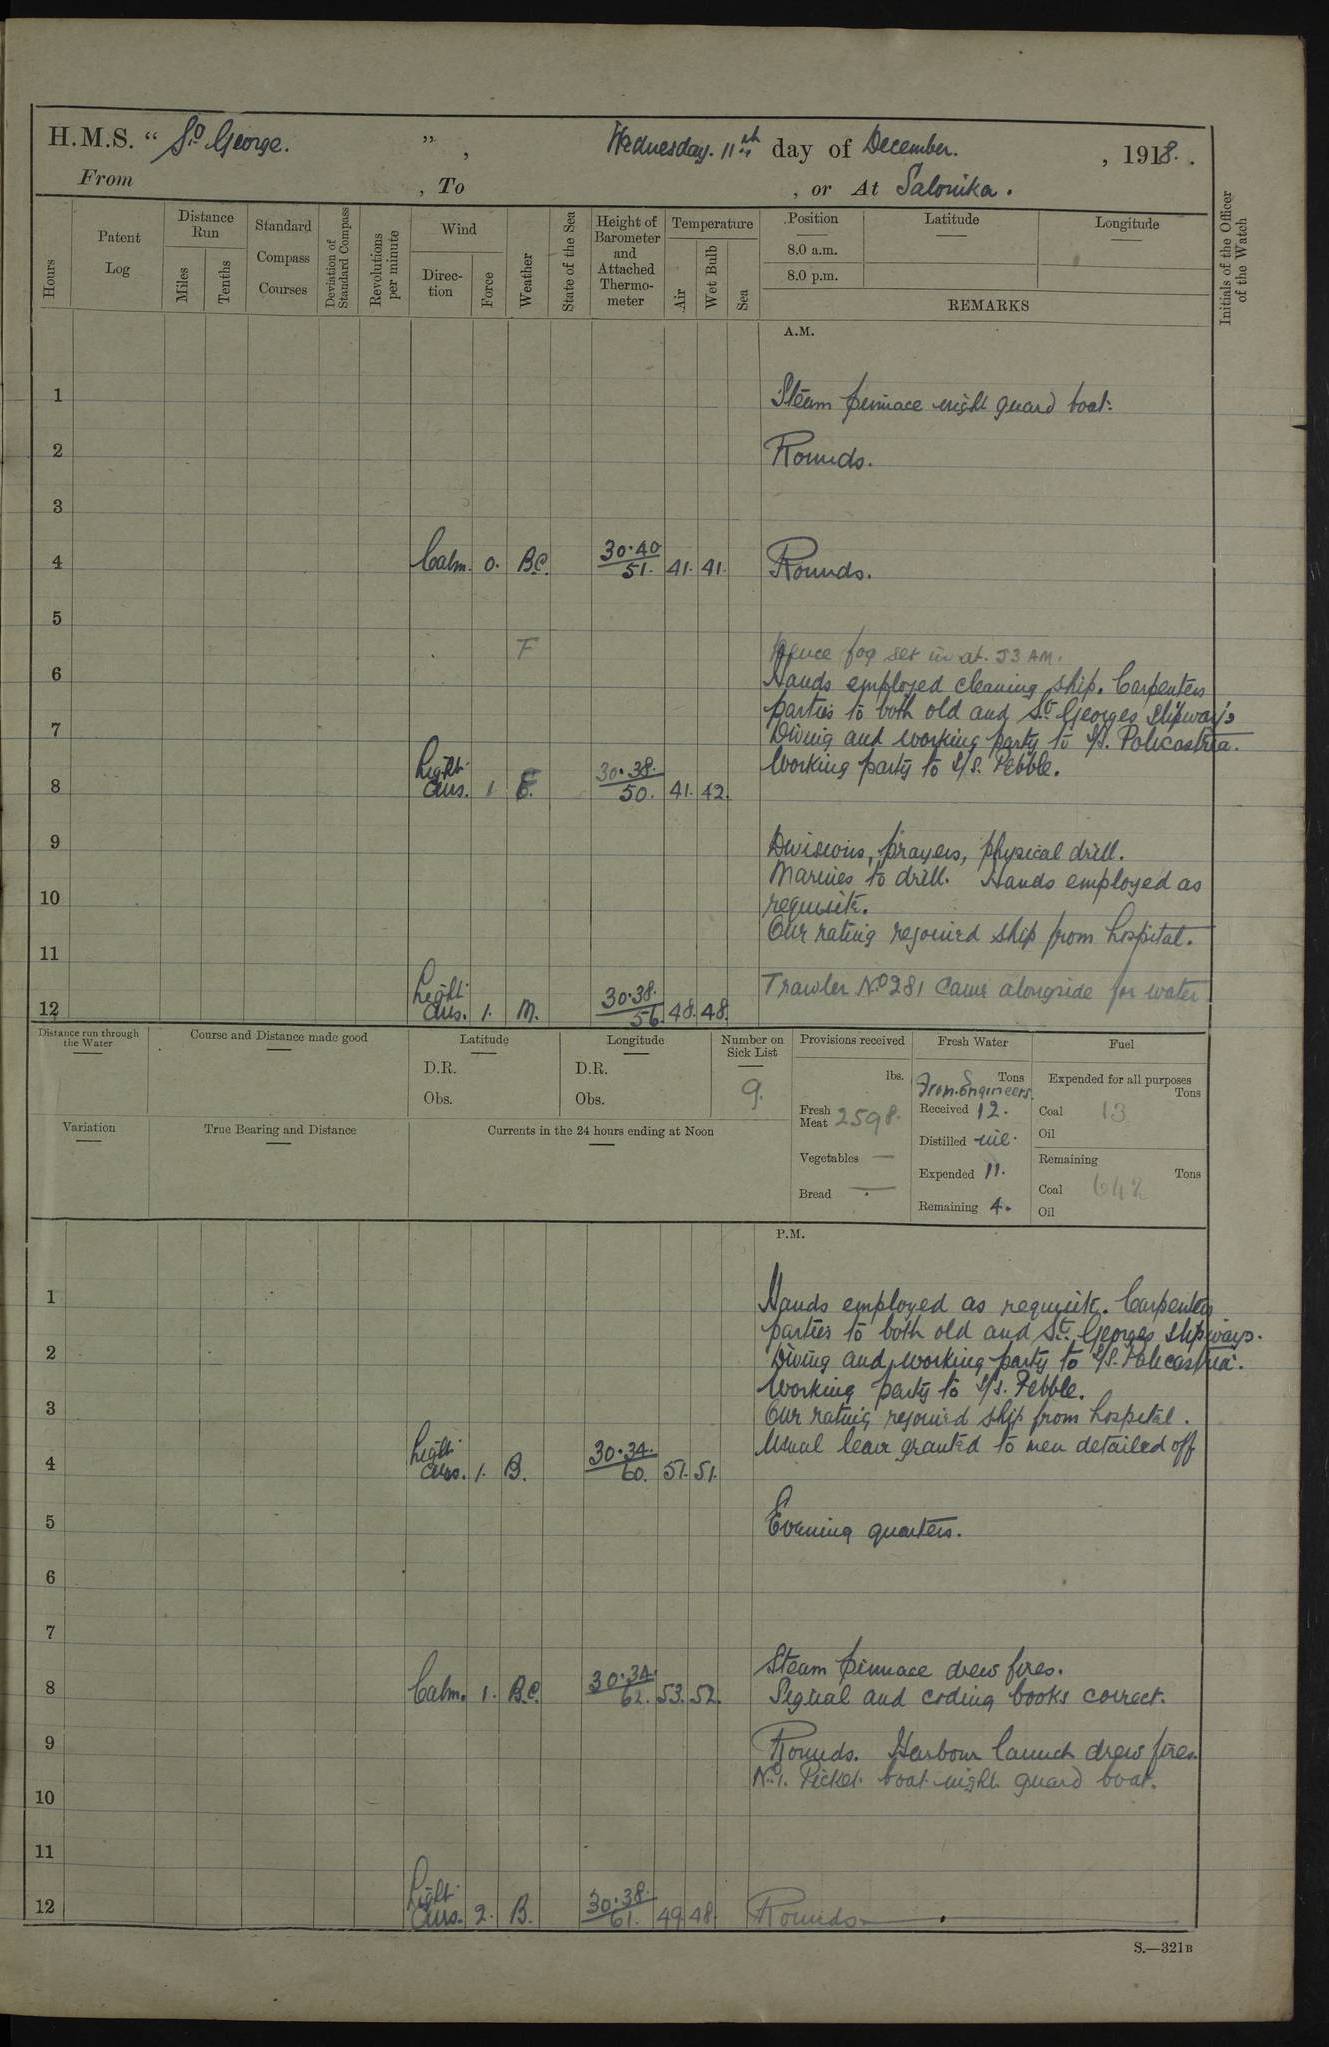 H.M.S. " St George. ", Wednesday. 11th day of December. , 1918.
From , To , or At Salonika.
Hours
Patent Log
Distance Run
Miles
Tenths
Standard Compass Courses
Deviation of Standard Compass
Revolutions per minute
Wind
Direc-tion
Force
Weather
State of the Sea
Height of Barometer and Attached Thermo-meter
Temperature
Air
Wet Bulb
Sea
Position
Latitude
Longitude
8.0 a.m.
8.0 p.m.
REMARKS
Initials of the Officer of the Watch
A.M.
1 Steam pinnace night guard boat.
2 Rounds.
3
4 Calm. 0. B.C. 30.40 51. 41. 41. Rounds.
5
F fog set in at
6 Hands employed cleaning ship. Carpenters
parties to both old and St. Georges Slipways
7 Diving and working party to S/S. Policastria.
Working party to S/S. Pebble.
8 Light airs. 1 F. 30.38. 50. 41. 42.
9 Divisions, prayers, physical drill.
Marines to drill. Hands employed as
10 requisite.
One rating rejoined ship from hospital.
11
Trawler No 281 came alongside for water
12 Light airs. 1. M. 30.38. 56. 48. 48.
Distance run through the Water
Course and Distance made good
Latitude
D.R.
Obs.
Longitude
D.R.
Obs.
Number on Sick List
9.
Provisions received
lbs.
Fresh Meat 2598.
Vegetables —
Bread —
Fresh Water
Tons
From Engineers.
Received 12.
Distilled nil.
Expended 11.
Remaining 4.
Fuel
Expended for all purposes
Tons
Coal 13
Oil
Remaining
Tons
Coal 642
Oil
Variation
True Bearing and Distance
Currents in the 24 hours ending at Noon
P.M.
1 Hands employed as requisite. Carpenters
parties to both old and St. Georges Slipways.
2 Diving and working party to S/S. Policastria.
Working party to S/S. Pebble.
3 One rating rejoined ship from hospital.
Usual leave granted to men detailed off
4 Light airs. 1. B. 30.34. 60. 51. 51.
5 Evening quarters.
6
7
Steam pinnace drew fires.
8 Calm. 1. B.C. 30.34. 62. 53. 52. Signal and coding books correct.
9 Rounds. Harbour launch drew fires.
No 1. Picket boat night guard boat.
10
11
12 Light airs. 2. B. 30.38. 61. 49. 48. Rounds
S.—321B